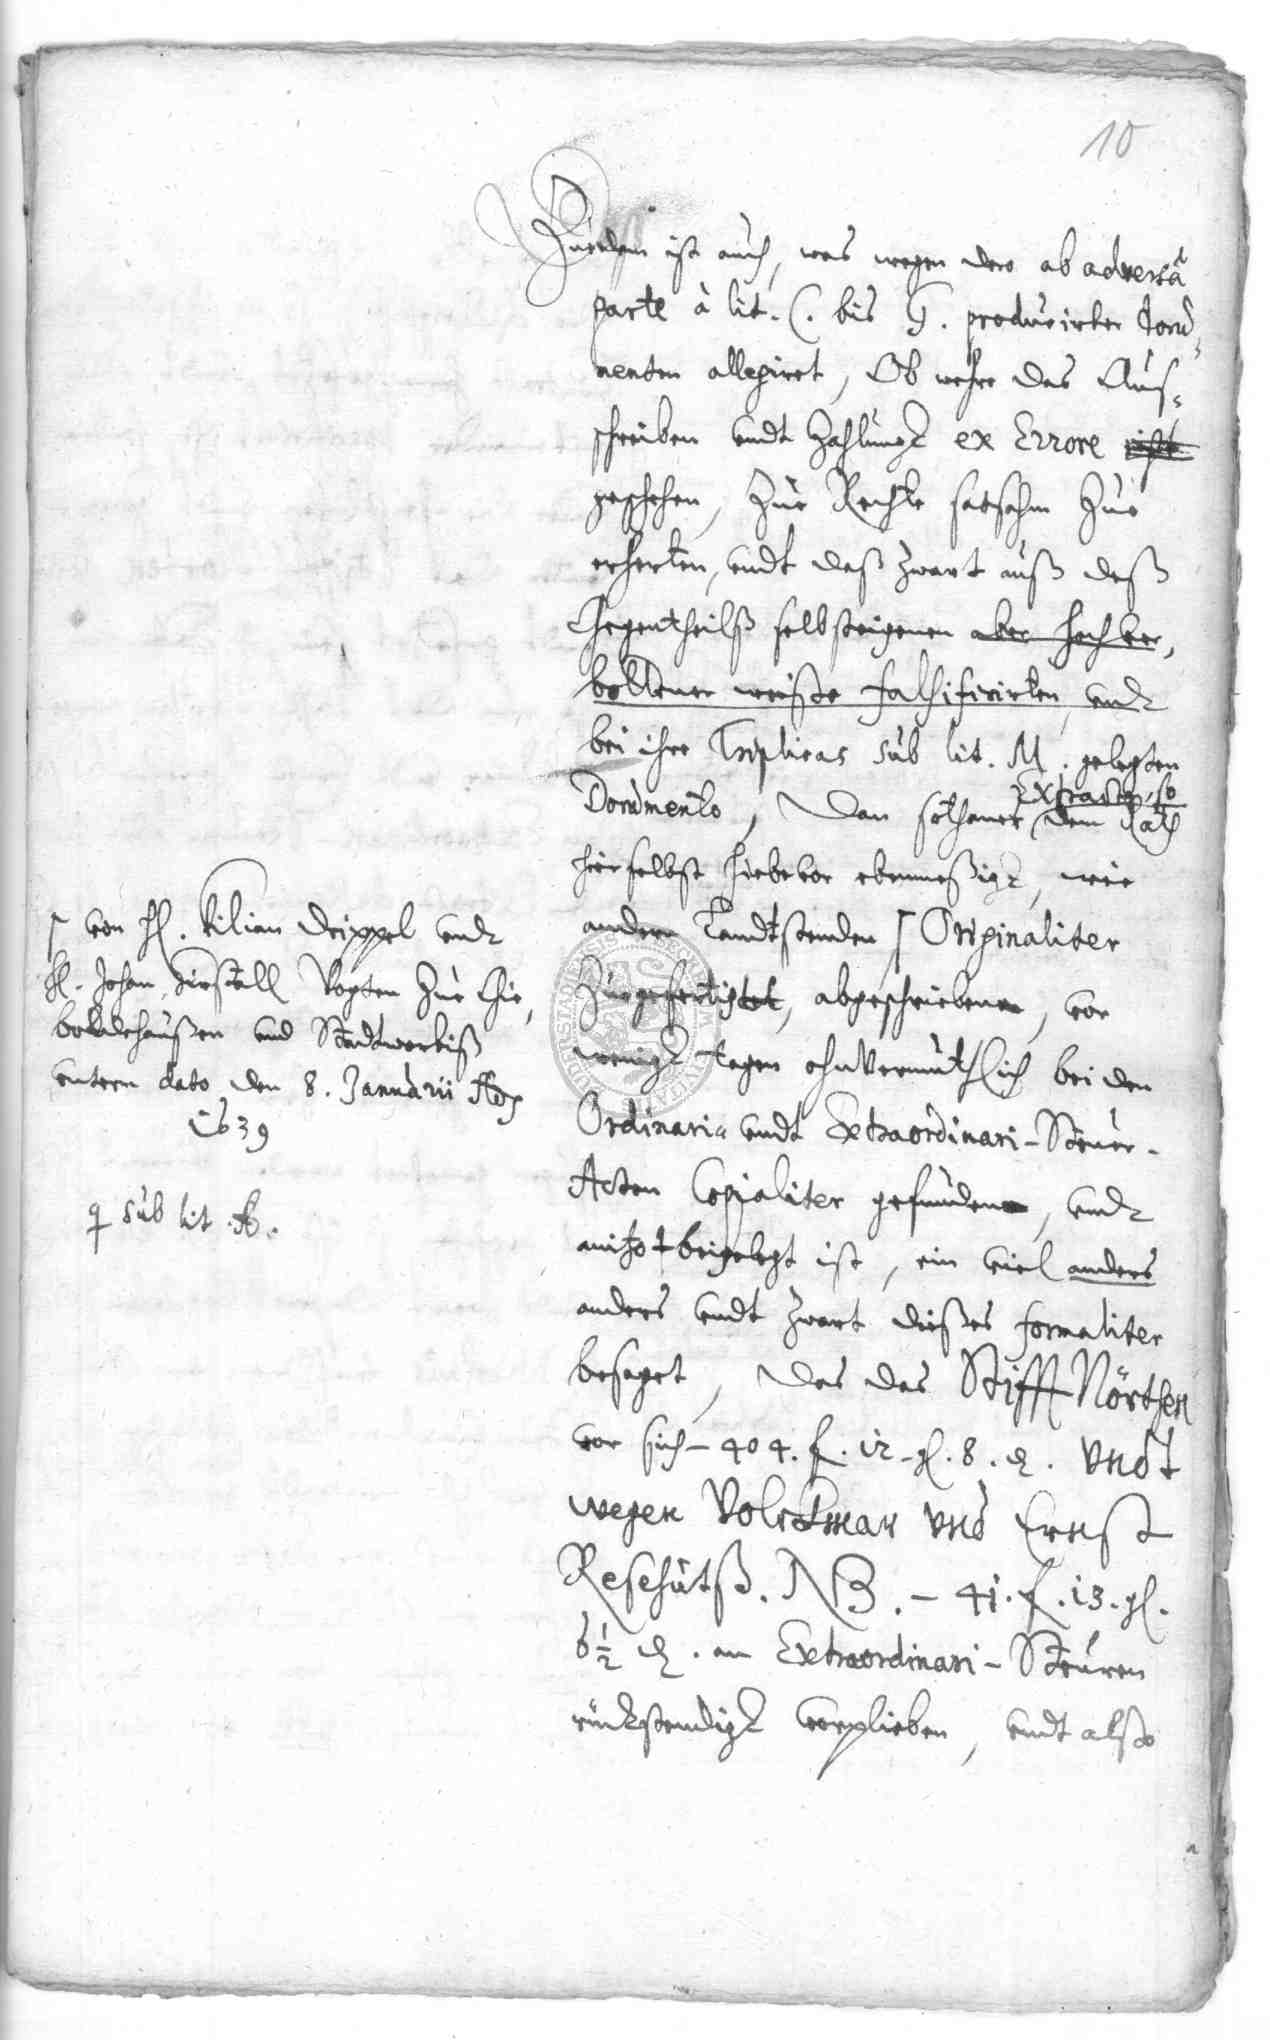 10
Zuedem ist auch, was wegen dero ab adversâ
parte à lit. C. bis G. producirter Docu-
menten allegiret, Ob wehre das Auß-
schreiben undt Zahlungk ex Errore ist
geschehen, Zue Rechte satsahm Zue
erherten, undt daß zwart auß deß
Gegentheilß selbsteigenen aber hochver-
bottener weiße falsificirten, undt
bei ihre Triplicas sub lit. M. gelegten
Documento, dan sothaner Extract, so
dem Rath
hierselbst hiebevor ebenmeßigk, wie
andern Landtstenden ſ Originaliter
Zuegefertigtet, abgeschrieben, vor
wenigk tagen ohnvermuthlich bei den
Ordinari- undt Extraordinari-Steuer-
Acten Copialiter gefunden, undt
anitzo beigelegt ist, ein viel anders
anders undt zwart dießes formaliter
besaget, das das Stifft Nörthen
vor sich - 404. f. 12 gl. 8. d. Vndt
wegen Volckmar Vnd Ernst
Reschütß. NB. - 41. f. 13. gl.
6 1/2 d. an Extraordinari-Steuren
rückstendigk verplieben, undt also
ſ von H. Kilian Drippel undt
H. Johan Vogten Zue Gie-
boldehaußen und Stadtworbiß
unterm dato den 8. Januarii Ao
1639
sub lit. A.